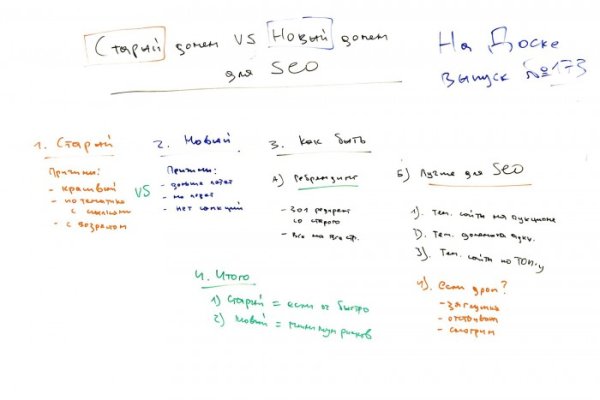 Старый домен VS Новый домен
для SEO
На Доске
выпуск №173
1. Старый
Причины:
- красивый
- по тематике
с ссылками
- с возрастом
VS
2. Новый
Причины:
- дольше
- нет санкций
3. Как быть
А) Ребрендинг
- 301 редирект
со старого
- Все на все стр.
Б) Лучше для SEO
1). Тем. сайты на аукционе
2). Тем. домена аукц.
3). Тем. сайты по ТОП-у
4). Если дроп?
- заглушка
- отстоять
- смотрим
4. Итого
1) Старый = если ок быстро
2) Новый = минимум рисков